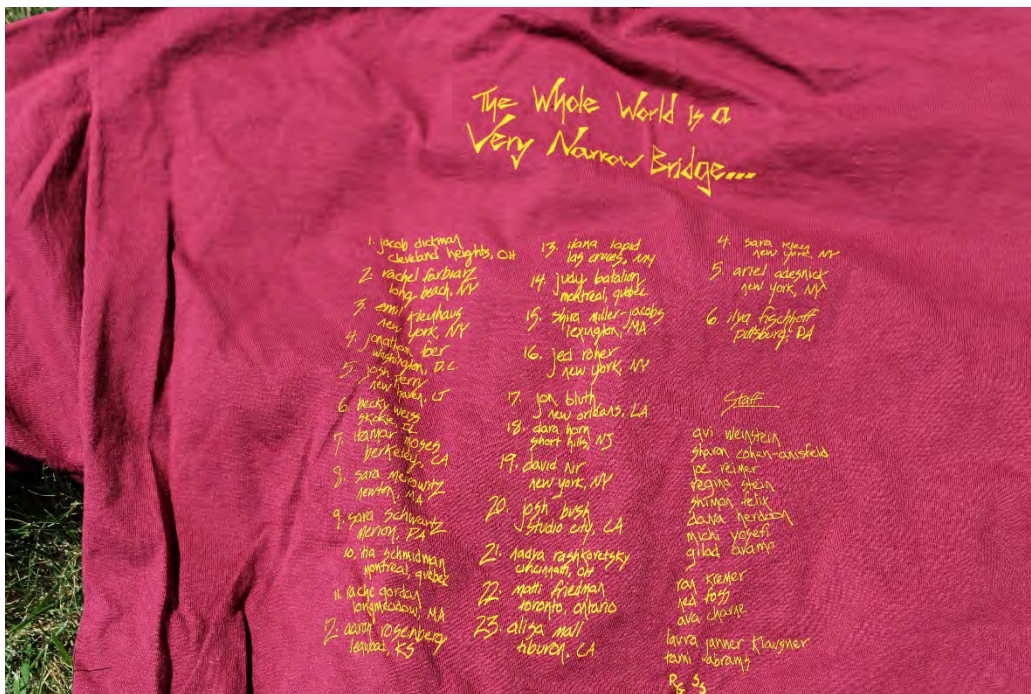 The Whole World is a
Very Narrow Bridge....
1. jacob dickman
cleveland heights, OH
2. rachel farbiarz
long beach, NY
3. emil kleyhaus
new york, NY
4. jonathan foer
washington, D.C
5. josh
new haven, CT
6. becky weiss
skokie, IL
7. itamar moses
berkeley, CA
8. sara meirowitz
newton, MA
9. sara schwartz
merion, PA
10. ita schmidman
montreal, quebec
11. rache gordan
longmeadow, MA
12. aaron rosenberg
KS
13. ilana lapid
las cruces, NY
14. judy batalion
montreal, quebec
15. shira miller-jacobs
lexington, MA
16. jed
new york, NY
17. jon bluth
new orleans, LA
18. dara horn
short hills, NJ
19. david nir
new york, NY
20. josh bush
studio city, CA
21. nadya rashkovetsky
cincinnati, OH
22. matti friedman
toronto, ontario
23. alisa mall
tiburon, CA
4. sara klein
new york, NY
5. ariel adesnick
new york, NY
6. ilya fischhoff
pittsburg, PA
Staff
avi weinstein
sharon cohen-anisfeld
joe reimer
regina stein
shimon felix
dana
michi yosefi
gilad
ray kremer
ned foss
ava charne
laura janner klausner
tami abrams